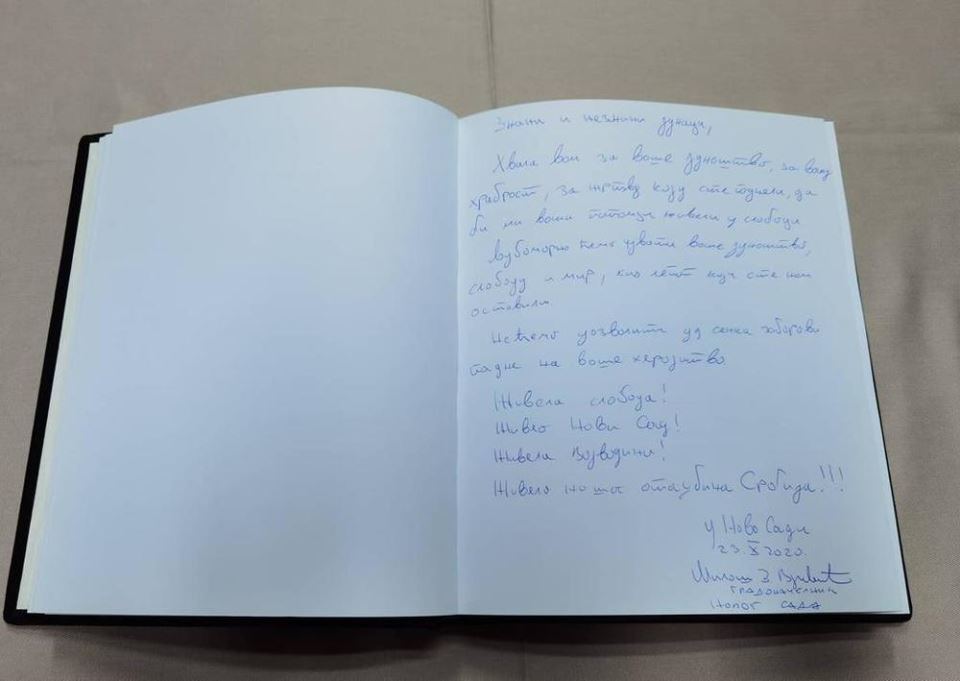 Знани и незнани јунаци,
Хвала вам за ваше јунаштво, за вашу
храброст, за жртву коју сте поднели, да
би ми ваши потомци живели у слободи
љубоморно ћемо чувати ваше јунаштво,
слободу и мир, као што сте нам
оставили
Нећемо дозволити да сенка заборава
падне на ваше херојство
Живела слобода!
Живео Нови Сад!
Живела Војводина!
Живела наша отаџбина Србија!!!
у Новом Саду
23. X 2020.
Милош
градоначелник
Новог Сада